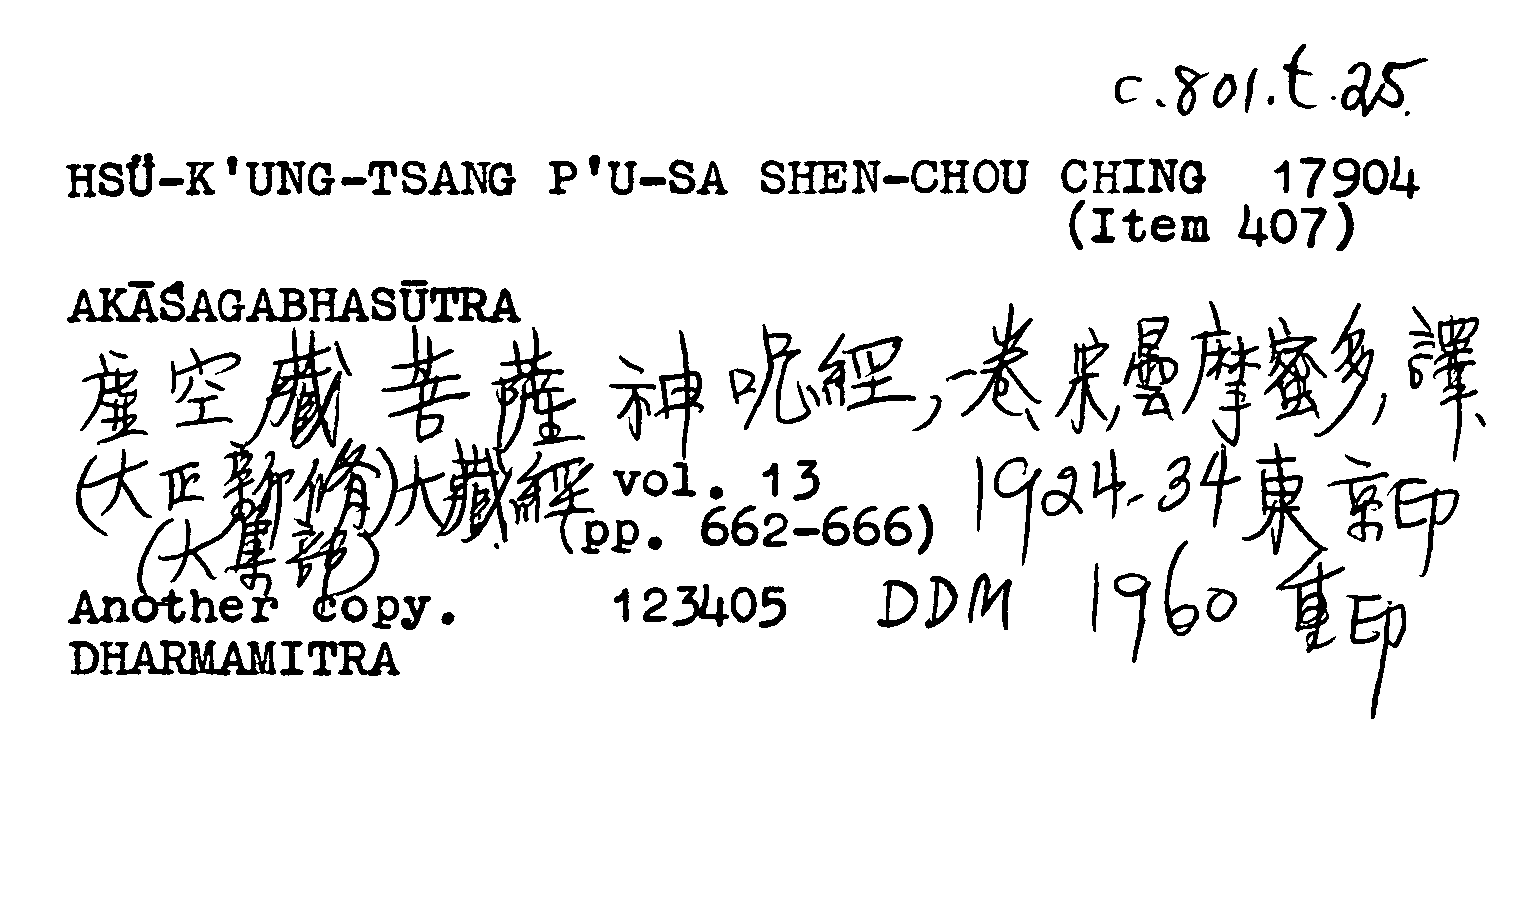 c.801.t.25.
HSÜ-K'UNG-TSANG P'U-SA SHEN-CHOU CHING 17904
(Item 407)
AKĀŚAGABHASŪTRA
虛空藏菩薩神呪經,一卷、宋,曇摩蜜多,譯、
(大正新脩)大藏經 vol. 13 1924-34東京印
(大集部) (pp. 662-666)
Another copy. 123405 DDM 1960 重印
DHARMAMITRA